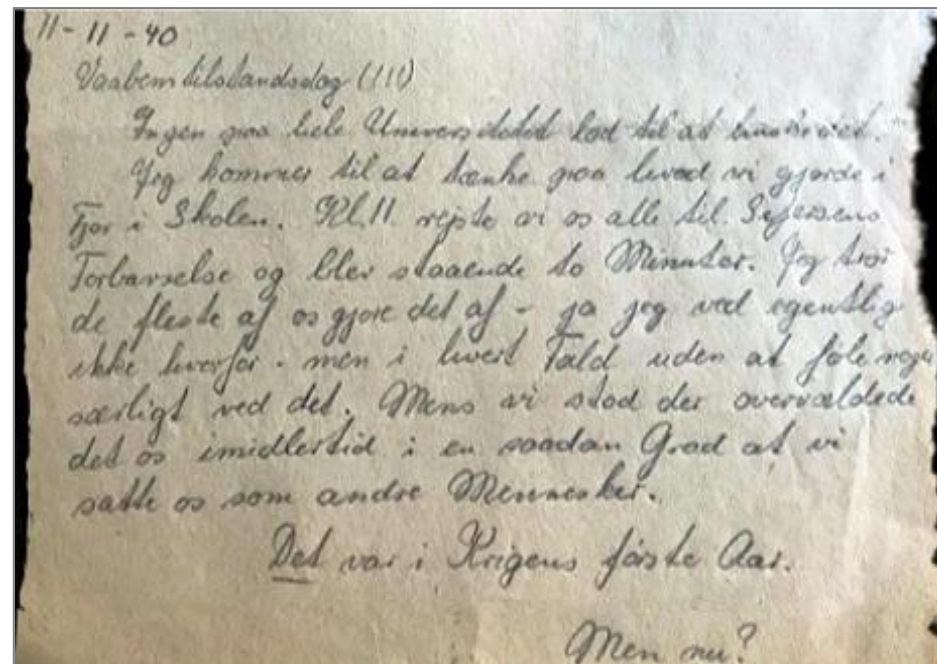 11-11-40
Vaabenstilstandsdag (!!!)
Ingen paa hele Universitetet lod til at huske det.
Jeg kommer til at tænke paa hvad vi gjorde i
Fjor i Skolen. Kl. 11. rejste vi os alle til
Forbavselse og blev staaende to Minutter. Jeg tror
de fleste af os gjore det af – ja jeg ved egentlig
ikke hvorfor – men i hvert Fald uden at føle noget
særligt ved det. Mens vi stod der overvældede
det os imidlertid i en saadan Grad at vi
satte os som andre Mennesker.
Det var i Krigens første Aar.
Men nu?